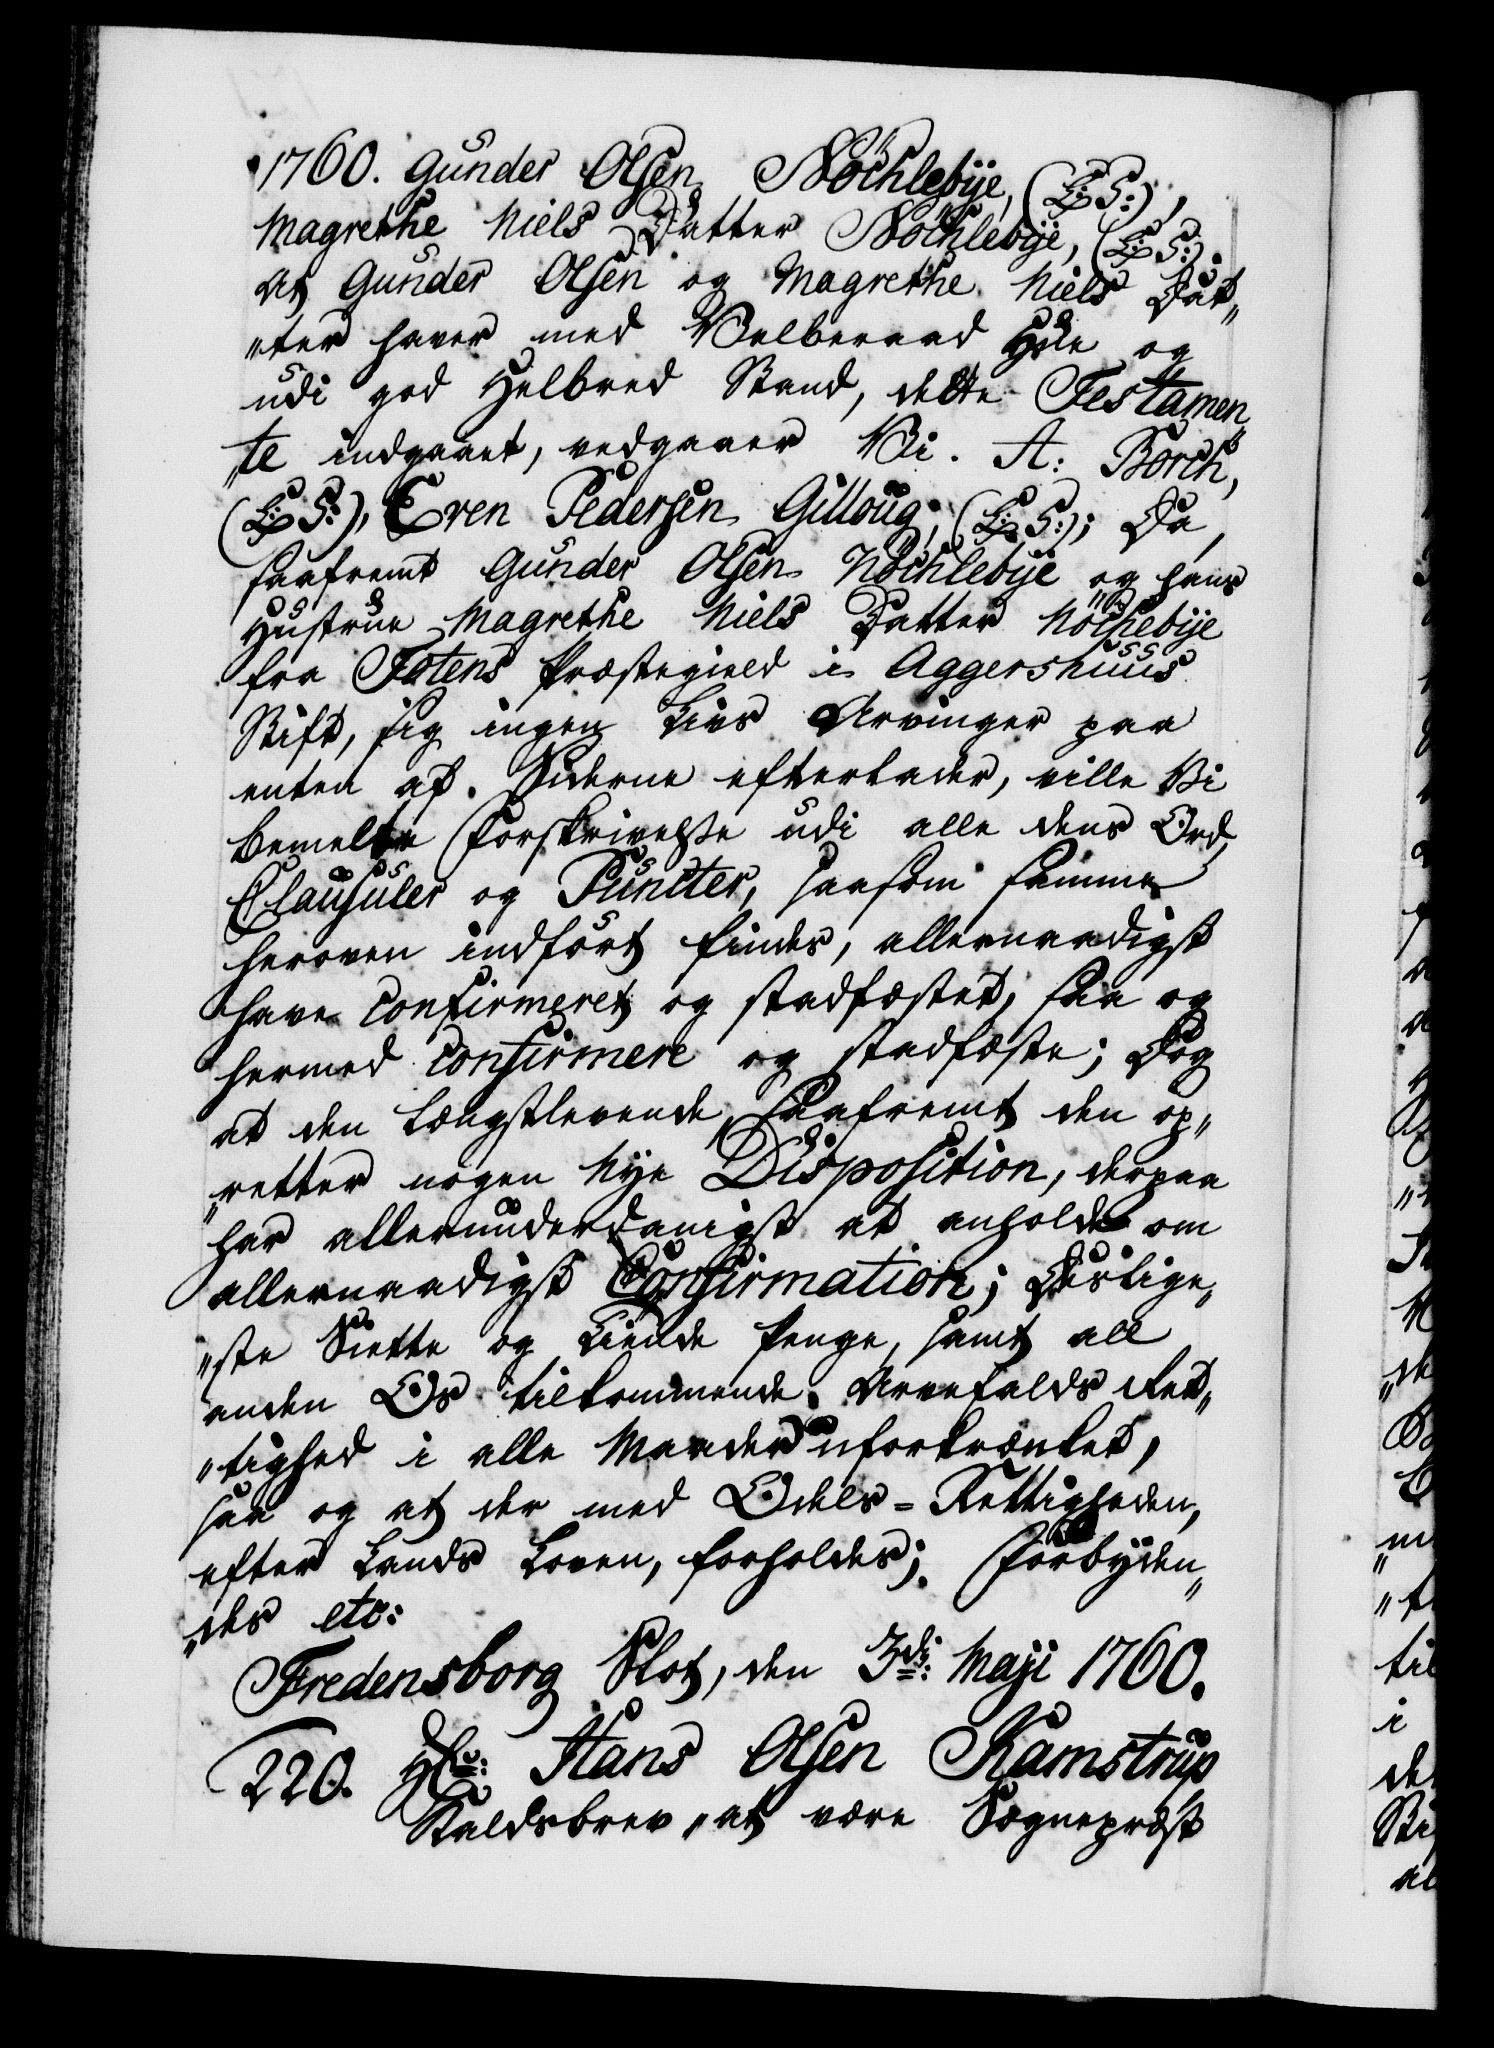 1760. Gunder Olsen Nöchlebÿe, (L: S:),
Magrethe Niels Datter Nöchlebÿe, (L: S:).
At Gunder Olsen og Magrethe Niels Dat„
„ter haver med Velberaad Hue og
udi god Helbred Stand, dette Testamen„
„te indgaaet, vedgaaer Vi. A: Borch,
(L: S:), Even Pedersen Gilloug, (L: S:); Da,
saafremt Gunder Olsen Nöchlebÿe og hans
Hustrue Magrethe Niels Datter Nöchlebÿe
fra Totens Præstegield i Aggershuus
Stift, sig ingen Livs Arvinger paa
enten af Siderne efterlader, ville Vi
bemelte Forskrivelse udi alle dens Ord,
Clausuler og Puncter, saasom samme
heroven indført findes, allernaadigst
have confirmeret og stadfæstet, saa og
hermed confirmere og stadfæste; Dog
at den Længstlevende, saafremt den op„
„retter nogen Nÿe Disposition, derpaa
har allerunderdanigst at anholde om
allernaadigst Confirmation; Deslige„
„ste Siette og Tiende Penge, samt all
anden Os tilkommende Arvefalds Ret„
„tighed i alle Maader uforkrænket,
saa og at der med Odels-Rettigheden,
efter Lands Loven, forholdes; Forbÿden„
„des etc:
Fredensborg Slot, den 3di: Maji 1760.
220. Hr: Hans Olsen Kamstrup
Kaldsbrev, at være Sognepræst